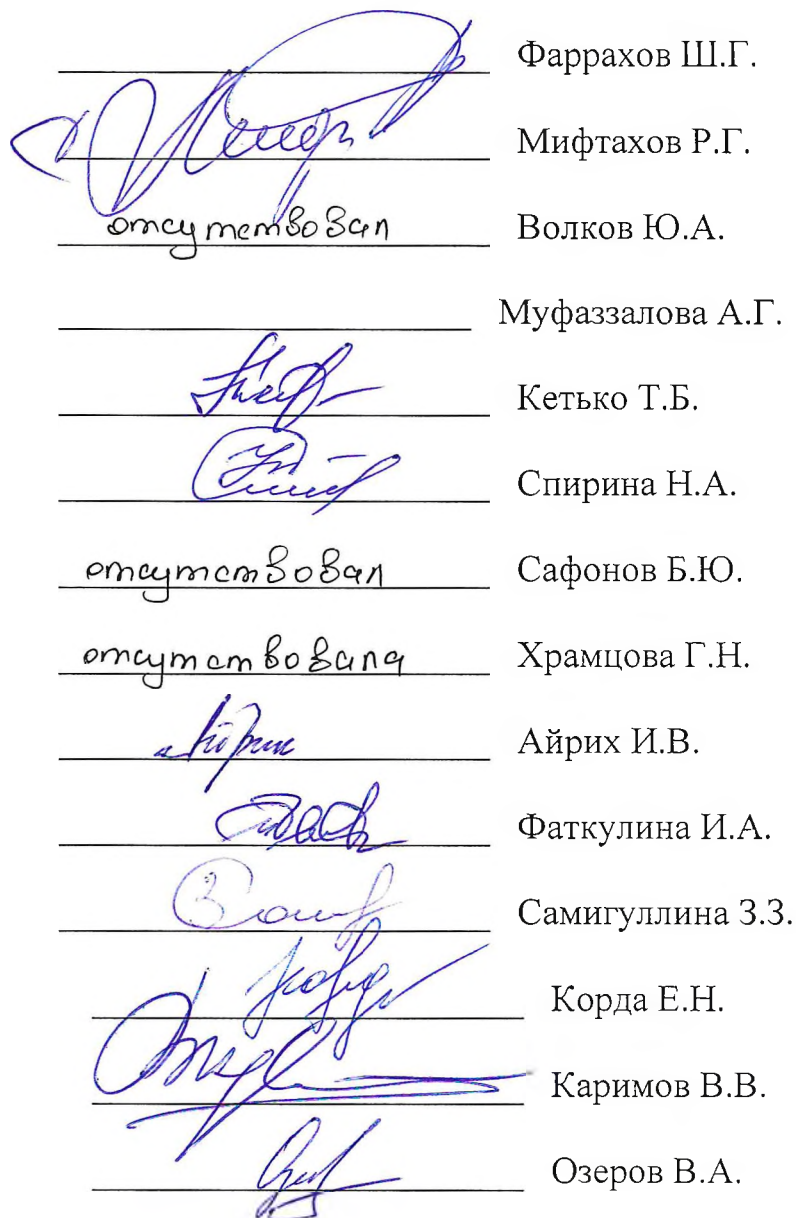 Фаррахов Ш.Г.
Мифтахов Р.Г.
отсутствовал Волков Ю.А.
Муфаззалова А.Г.
Кетько Т.Б.
Спирина Н.А.
отсутствовал Сафонов Б.Ю.
отсутствовала Храмцова Г.Н.
Айрих И.В.
Фаткулина И.А.
Самигуллина З.З.
Корда Е.Н.
Каримов В.В.
Озеров В.А.